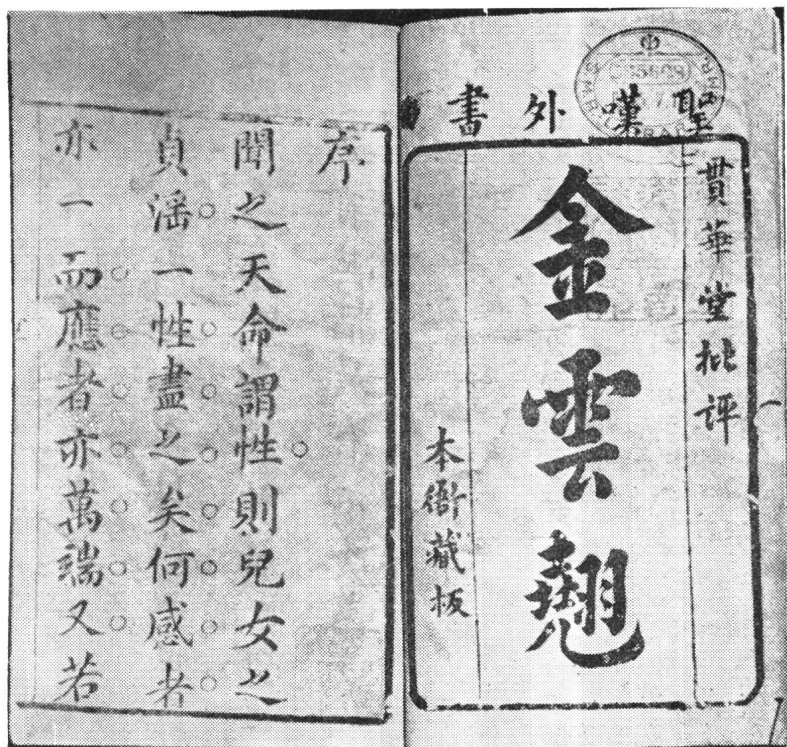 聖嘆外書
貫華堂批评
金雲翹
本衙藏板
序
聞之天命謂性則兒女之
貞淫一性盡之矣何感者
亦一而應者亦萬端又若